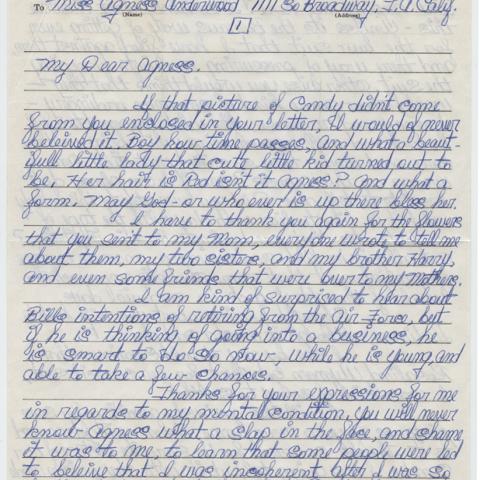 To Miss Agness Underwood 1111 So Broadway, L.A. Calif.
(Name) (Address)
1
My Dear Agness.
If that picture of Candy didn't come
from you enclosed in your letter, I would of never
beleived it. Boy how time passes, and what a beaut-
ifull little lady that cute little kid turned out to
be. Her hair is Red isn't it Agness? And what a
form. May God - or who ever is up there bless her.
I have to thank you again for the flowers
that you sent to my Mom, everyone wrote to tell me
about them, my two sisters, and my brother Harry,
and even some friends that were over to my Mothers.
I am kind of surprised to hear about
Bills intentions of retiring from the Air Force, but
if he is thinking of going into a business, he
is smart to do so now, while he is young, and
able to take a few chances.
Thanks for your expressions for me
in regards to my mental condition, you will never
know Agness what a slap in the face, and shame
it was to me, to learn that some people were led
to beleive that I was incoherent after I was so